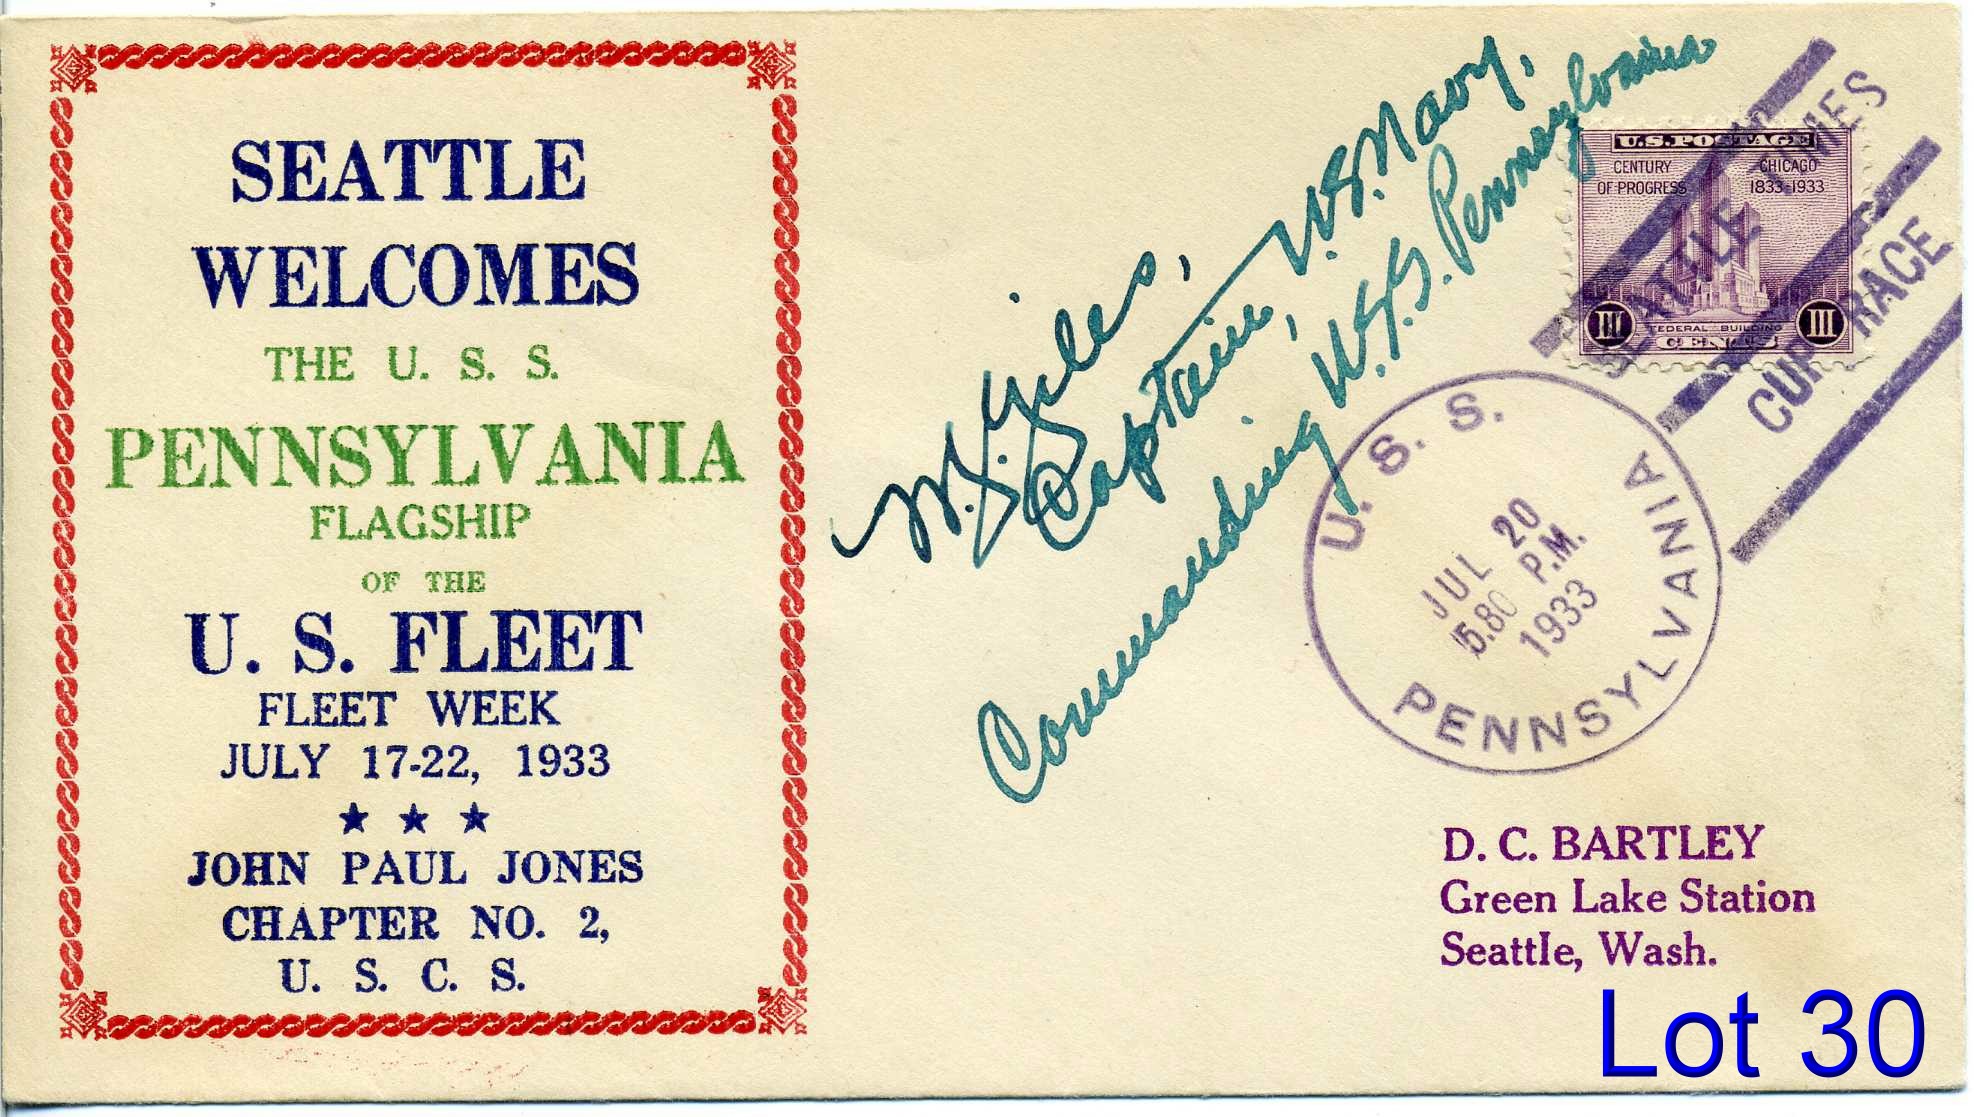 SEATTLE
WELCOMES
THE U. S. S.
PENNSYLVANIA
FLAGSHIP
OF THE
U. S. FLEET
FLEET WEEK
JULY 17-22, 1933
★ ★ ★
JOHN PAUL JONES
CHAPTER NO. 2,
U. S. C. S.
W. S. Giles,
Captain, U.S. Navy,
Commanding U.S.S. Pennsylvania
U.S. POSTAGE
CENTURY OF PROGRESS
CHICAGO 1833-1933
FEDERAL BUILDING
III CENTS III
SEATTLE TIMES
CUP RACE
U. S. S.
JUL 20
P.M.
1933
PENNSYLVANIA
D. C. BARTLEY
Green Lake Station
Seattle, Wash.
Lot 30